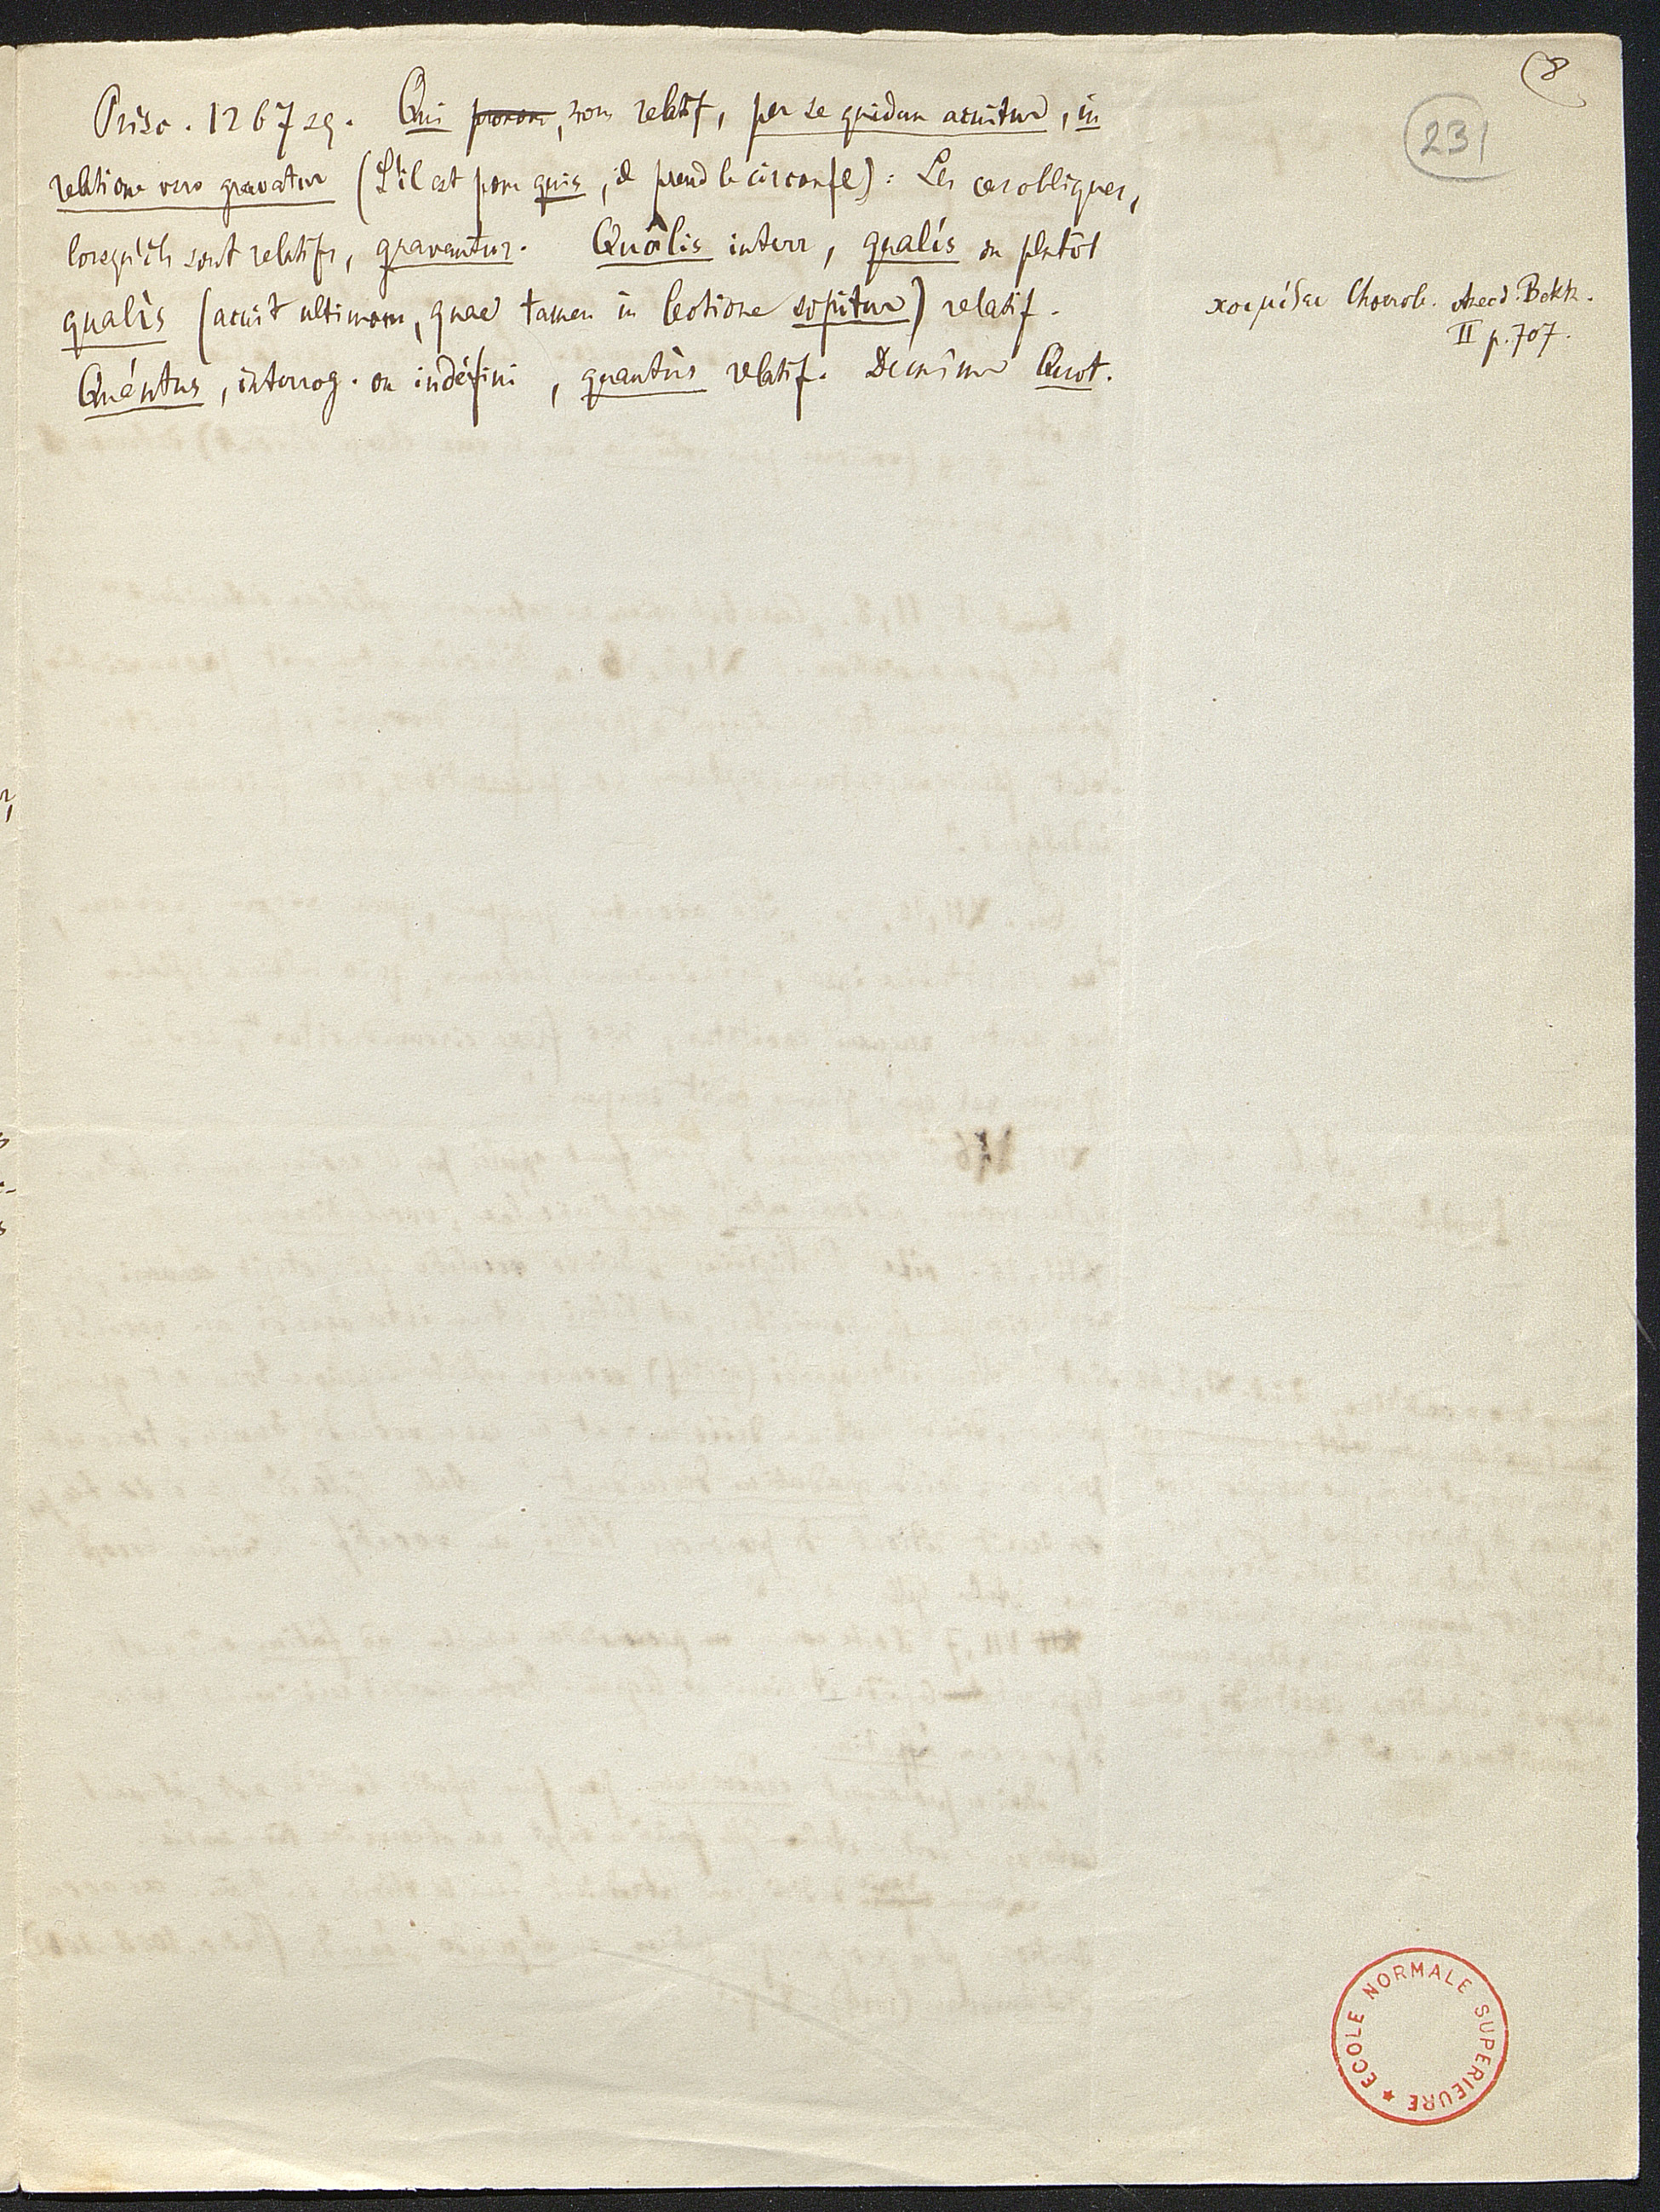 8
231
Prisc. 1267 sq. Qui pronom, non relatif, per se quidem acuitur, in
relatione vero gravatur (S'il est pour quis, il prend le circonfl): Les cas obliques,
lorsqu'ils sont relatifs, gravantur. Quâlis interr, qualís ou plutôt
qualìs (acuit ultimam, quae tamen in lectione sopitur) relatif.
Quántus, interrog. ou indéfini, quantùs relatif. De même Quot.
κοιμίζει Choerob. Anecd. Bekk.
II p. 707.
ECOLE NORMALE SUPERIEURE